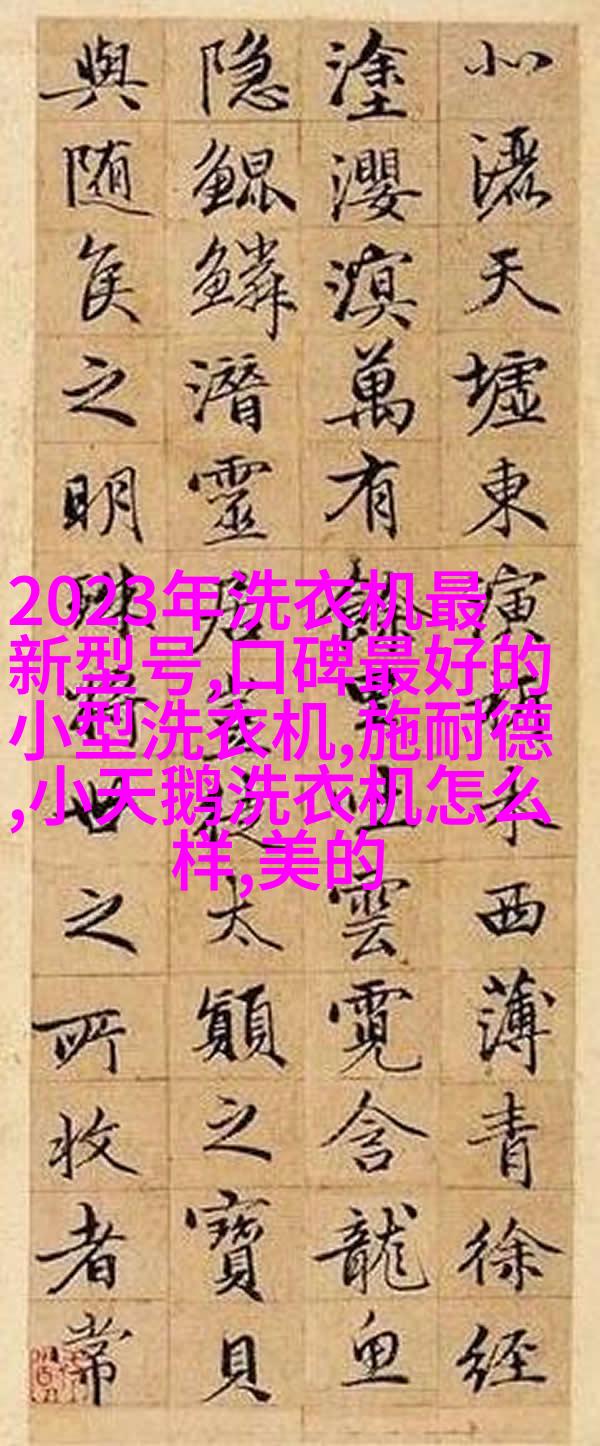 北灑天墟東演析木西薄青徐經
塗瀴溟萬有餘吐雲霓含龍魚
隐鯤鱗潛靈居豈太顛之寶貝
與随侯之明珠將世之所收者常
2023年洗衣机最
新型号,口碑最好的
小型洗衣机,施耐德
,小天鹅洗衣机怎么
样,美的